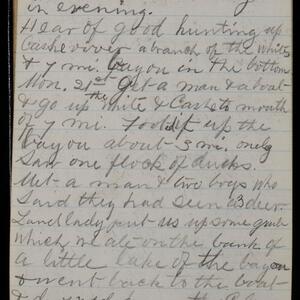 in evening.
Hear of good hunting up
Cashe river a branch of the White
& 7 mi. bayou in the bottom
Mon. 21st Get a man & a boat
& go up the White & Cashe to mouth
of 7 mi. Foot it up the
bayou about 3 mi. only
saw one flock of ducks.
Met a man & two boys who
said they had seen a 3 deer.
Landlady put us up some grub
which we ate on the bank of
a little lake of the bayou
& went back to the boat